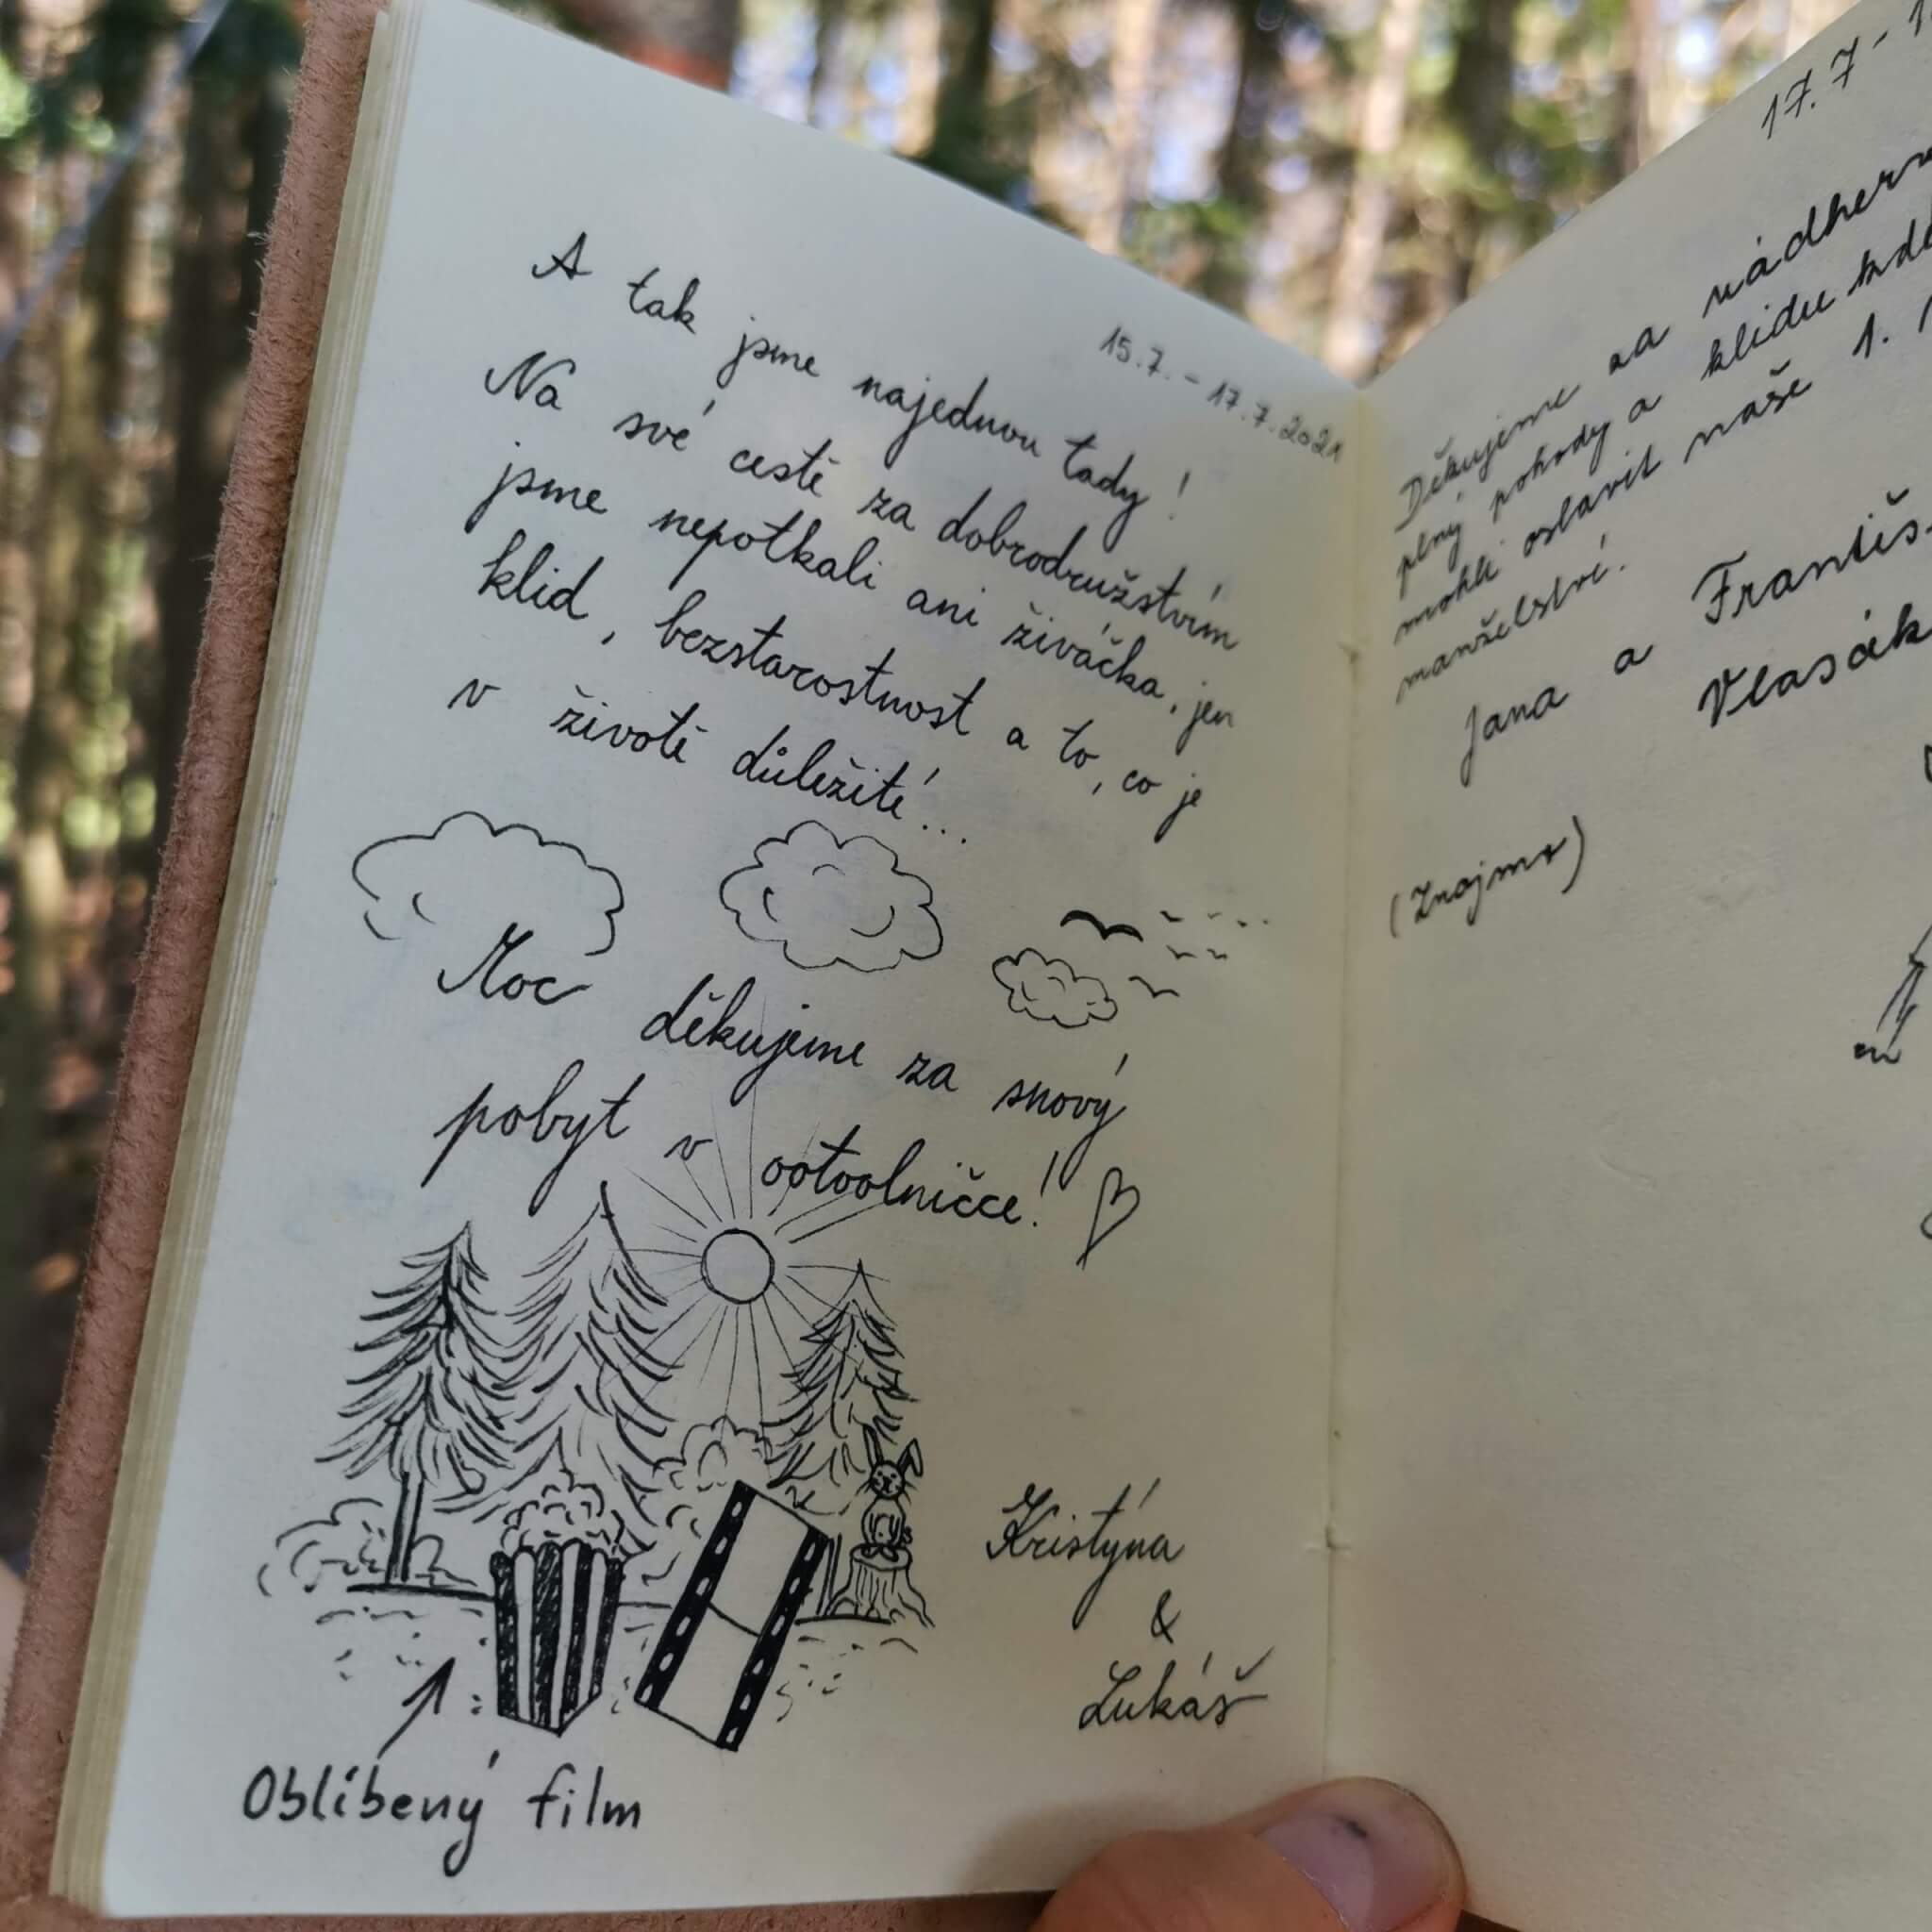 15.7. - 17.7.2021
A tak jsme najednou tady!
Na své cestě za dobrodružstvím
jsme nepotkali ani živáčka, jen
klid, bezstarostnost a to, co je
v životě důležité...
Moc děkujeme za snový
pobyt v ootoolničce!
Kristýna
&
Lukáš
Oblíbený film
17.7 - 1
Děkujeme za nádhern
plný pohody a klidu kde
mohli oslavit naše 1.
manželství.
Jana a Františ
Vlasák
(Znojmo)